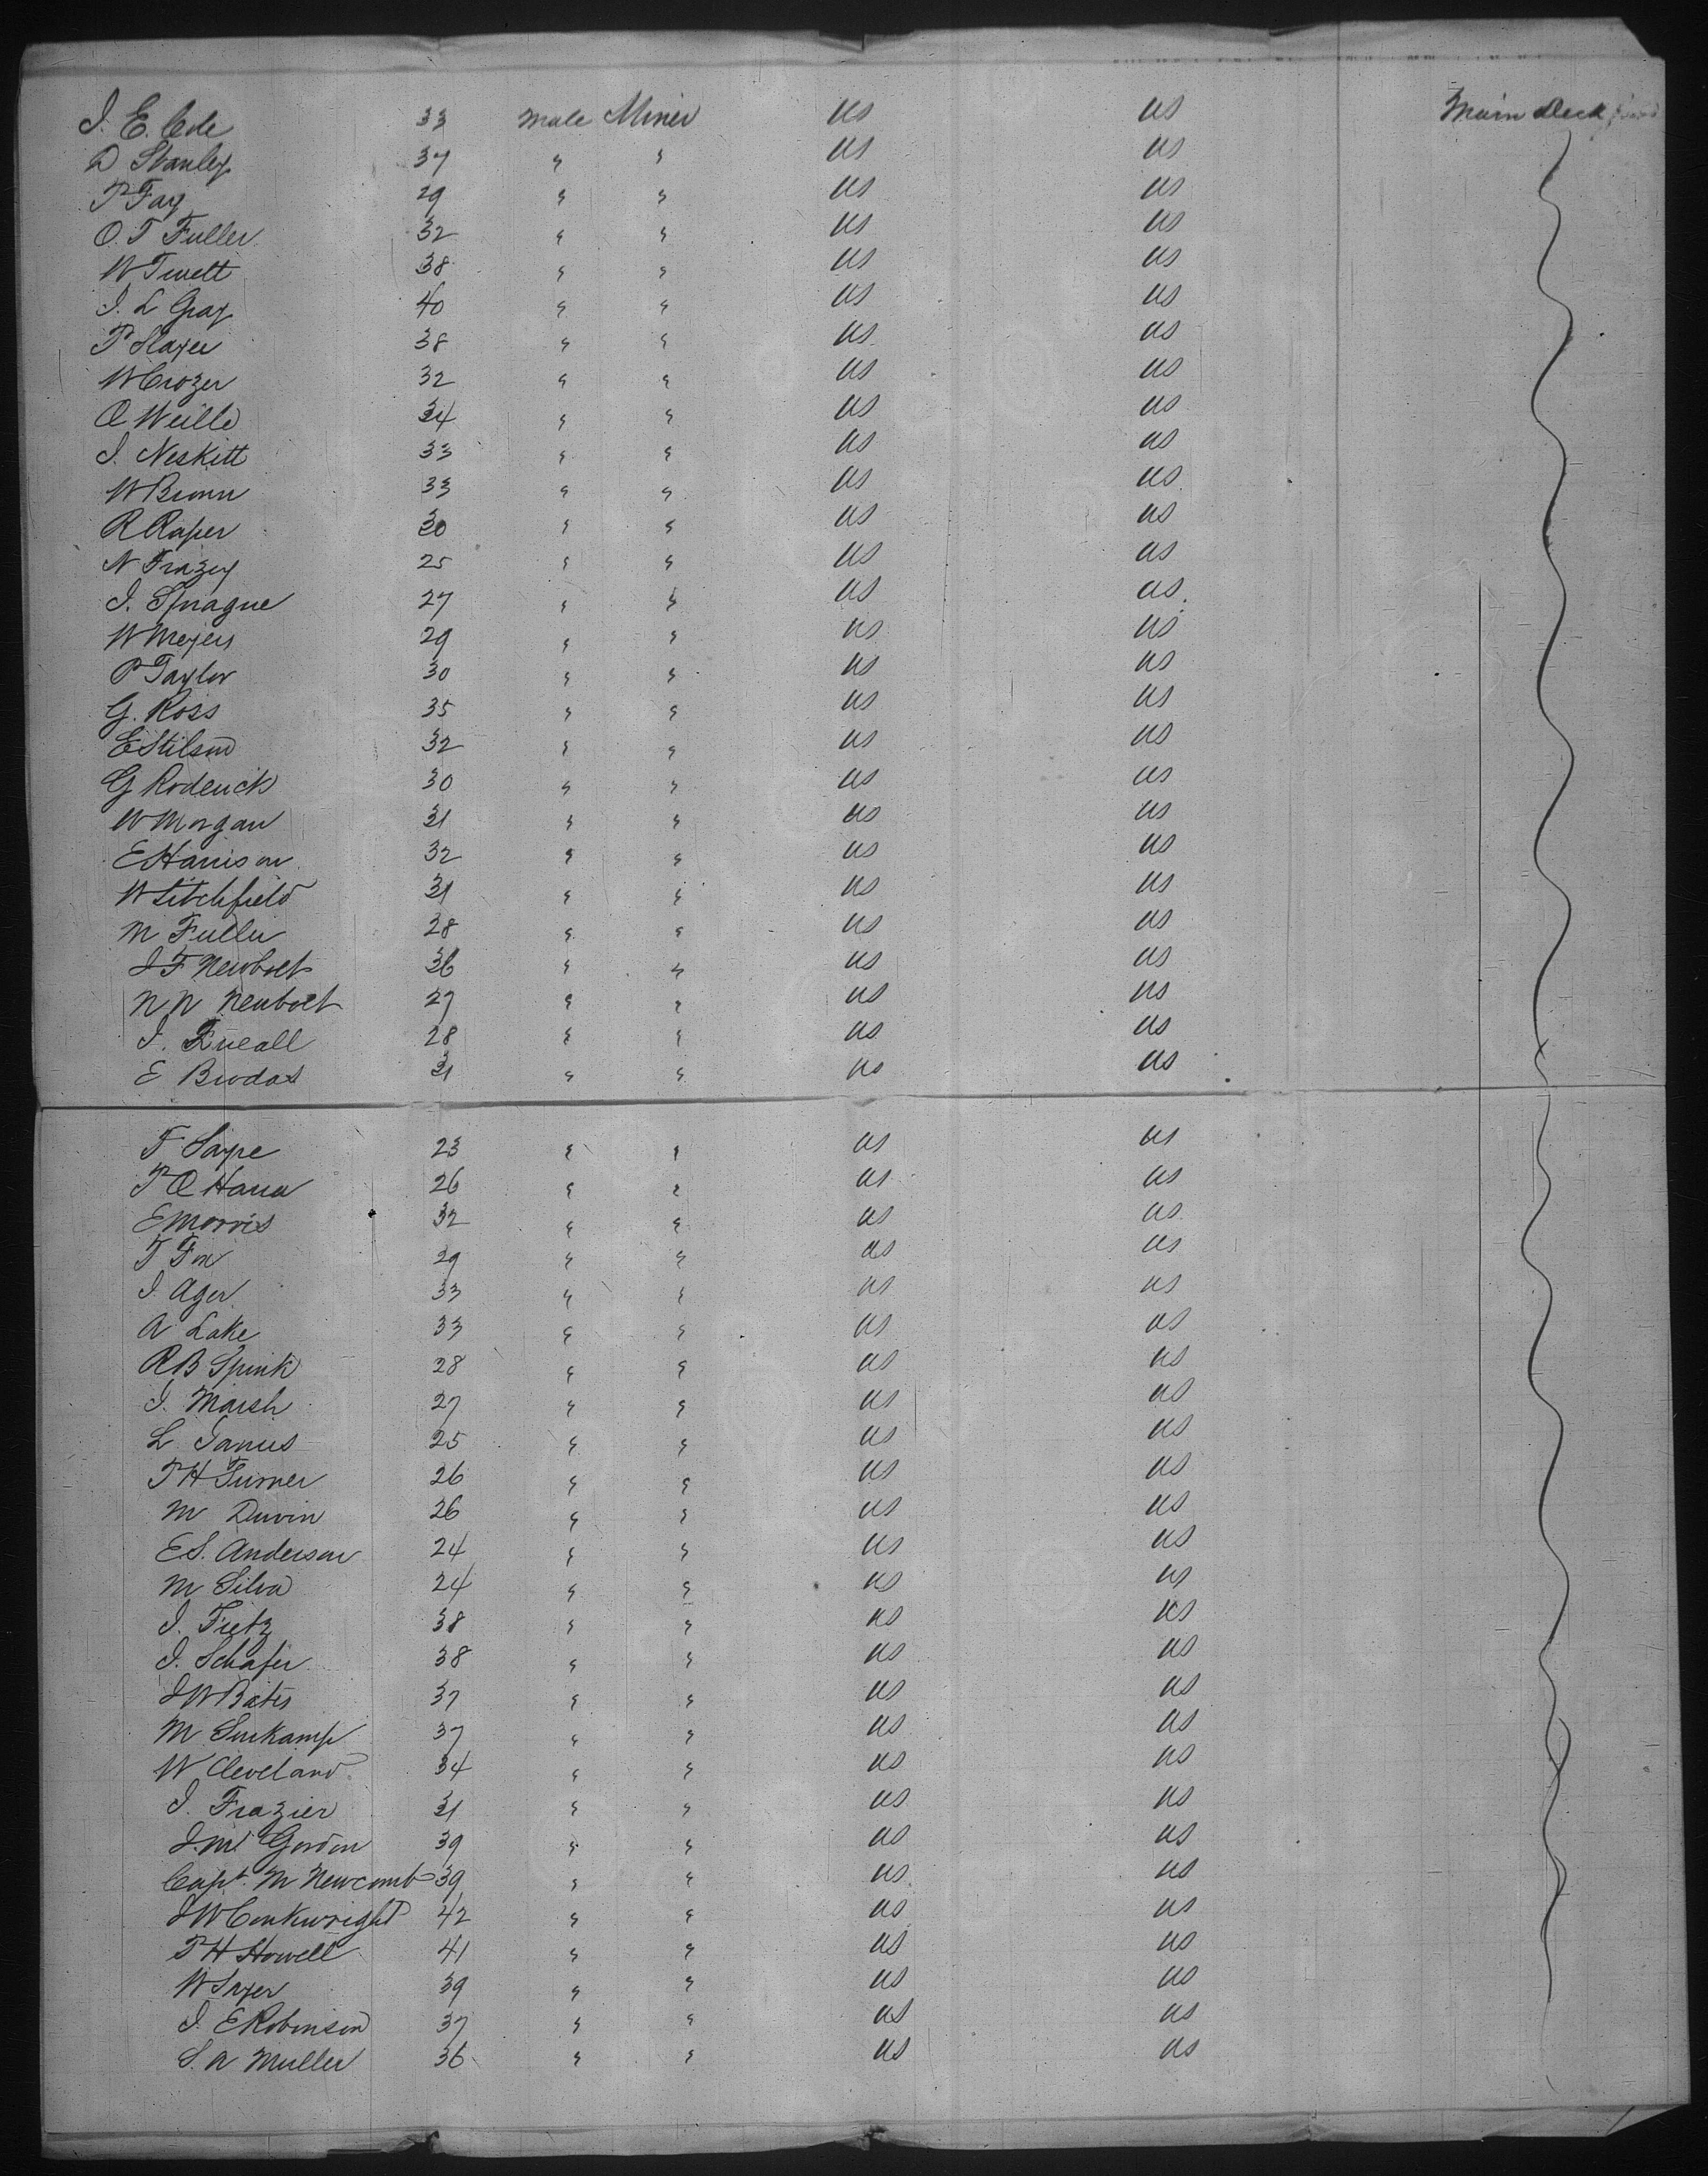 J. E. Cole 33 Male Miner US US Main Deck
D Stanley 37 " " US US
P Fay 29 " " US US
O. T Fuller 32 " " US US
W Twett 38 " " US US
J. L Gray 40 " " US US
P Slayer 38 " " US US
W Crozer 32 " " US US
O Weille 34 " " US US
J. Neskitt 33 " " US US
W Brown 33 " " US US
R Raper 30 " " US US
N Frazey 25 " " US US
J. Sprague 27 " " US US
W Meyers 29 " " US US
P Taylor 30 " " US US
G. Ross 35 " " US US
E Stilson 32 " " US US
G Roderick 30 " " US US
W Morgan 31 " " US US
E Harrison 32 " " US US
W Litchfield 31 " " US US
M Fuller 28 " " US US
J F Newbolt 36 " " US US
N N Newbolt 27 " " US US
J. 28 " " US US
E 31 " " US US
F Saype 23 " " US US
P O Hara 26 " " US US
E Morris 32 " " US US
T Fox 29 " " US US
J. Ager 33 " " US US
A Lake 33 " " US US
R B Spink 28 " " US US
J. Marsh 27 " " US US
L Janus 25 " " US US
T H Turner 26 " " US US
M Durvin 26 " " US US
E S. Anderson 24 " " US US
M Silva 24 " " US US
J. Fietz 38 " " US US
J. Schafer 38 " " US US
J W Bates 37 " " US US
M Surkamp 37 " " US US
W Cleveland 34 " " US US
J. Frazier 31 " " US US
J. M. Gordon 39 " " US US
Capt. M Newcomb 39 " " US US
J W Conkwright 42 " " US US
T H Howell 41 " " US US
W Sayer 39 " " US US
J. E Robinson 37 " " US US
S. A Muller 36 " " US US